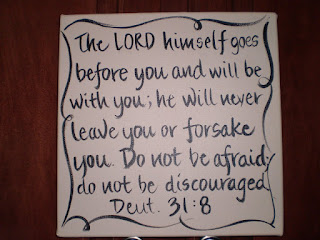 The LORD himself goes
before you and will be
with you; he will never
leave you or forsake
you. Do not be afraid;
do not be discouraged
Deut. 31:8